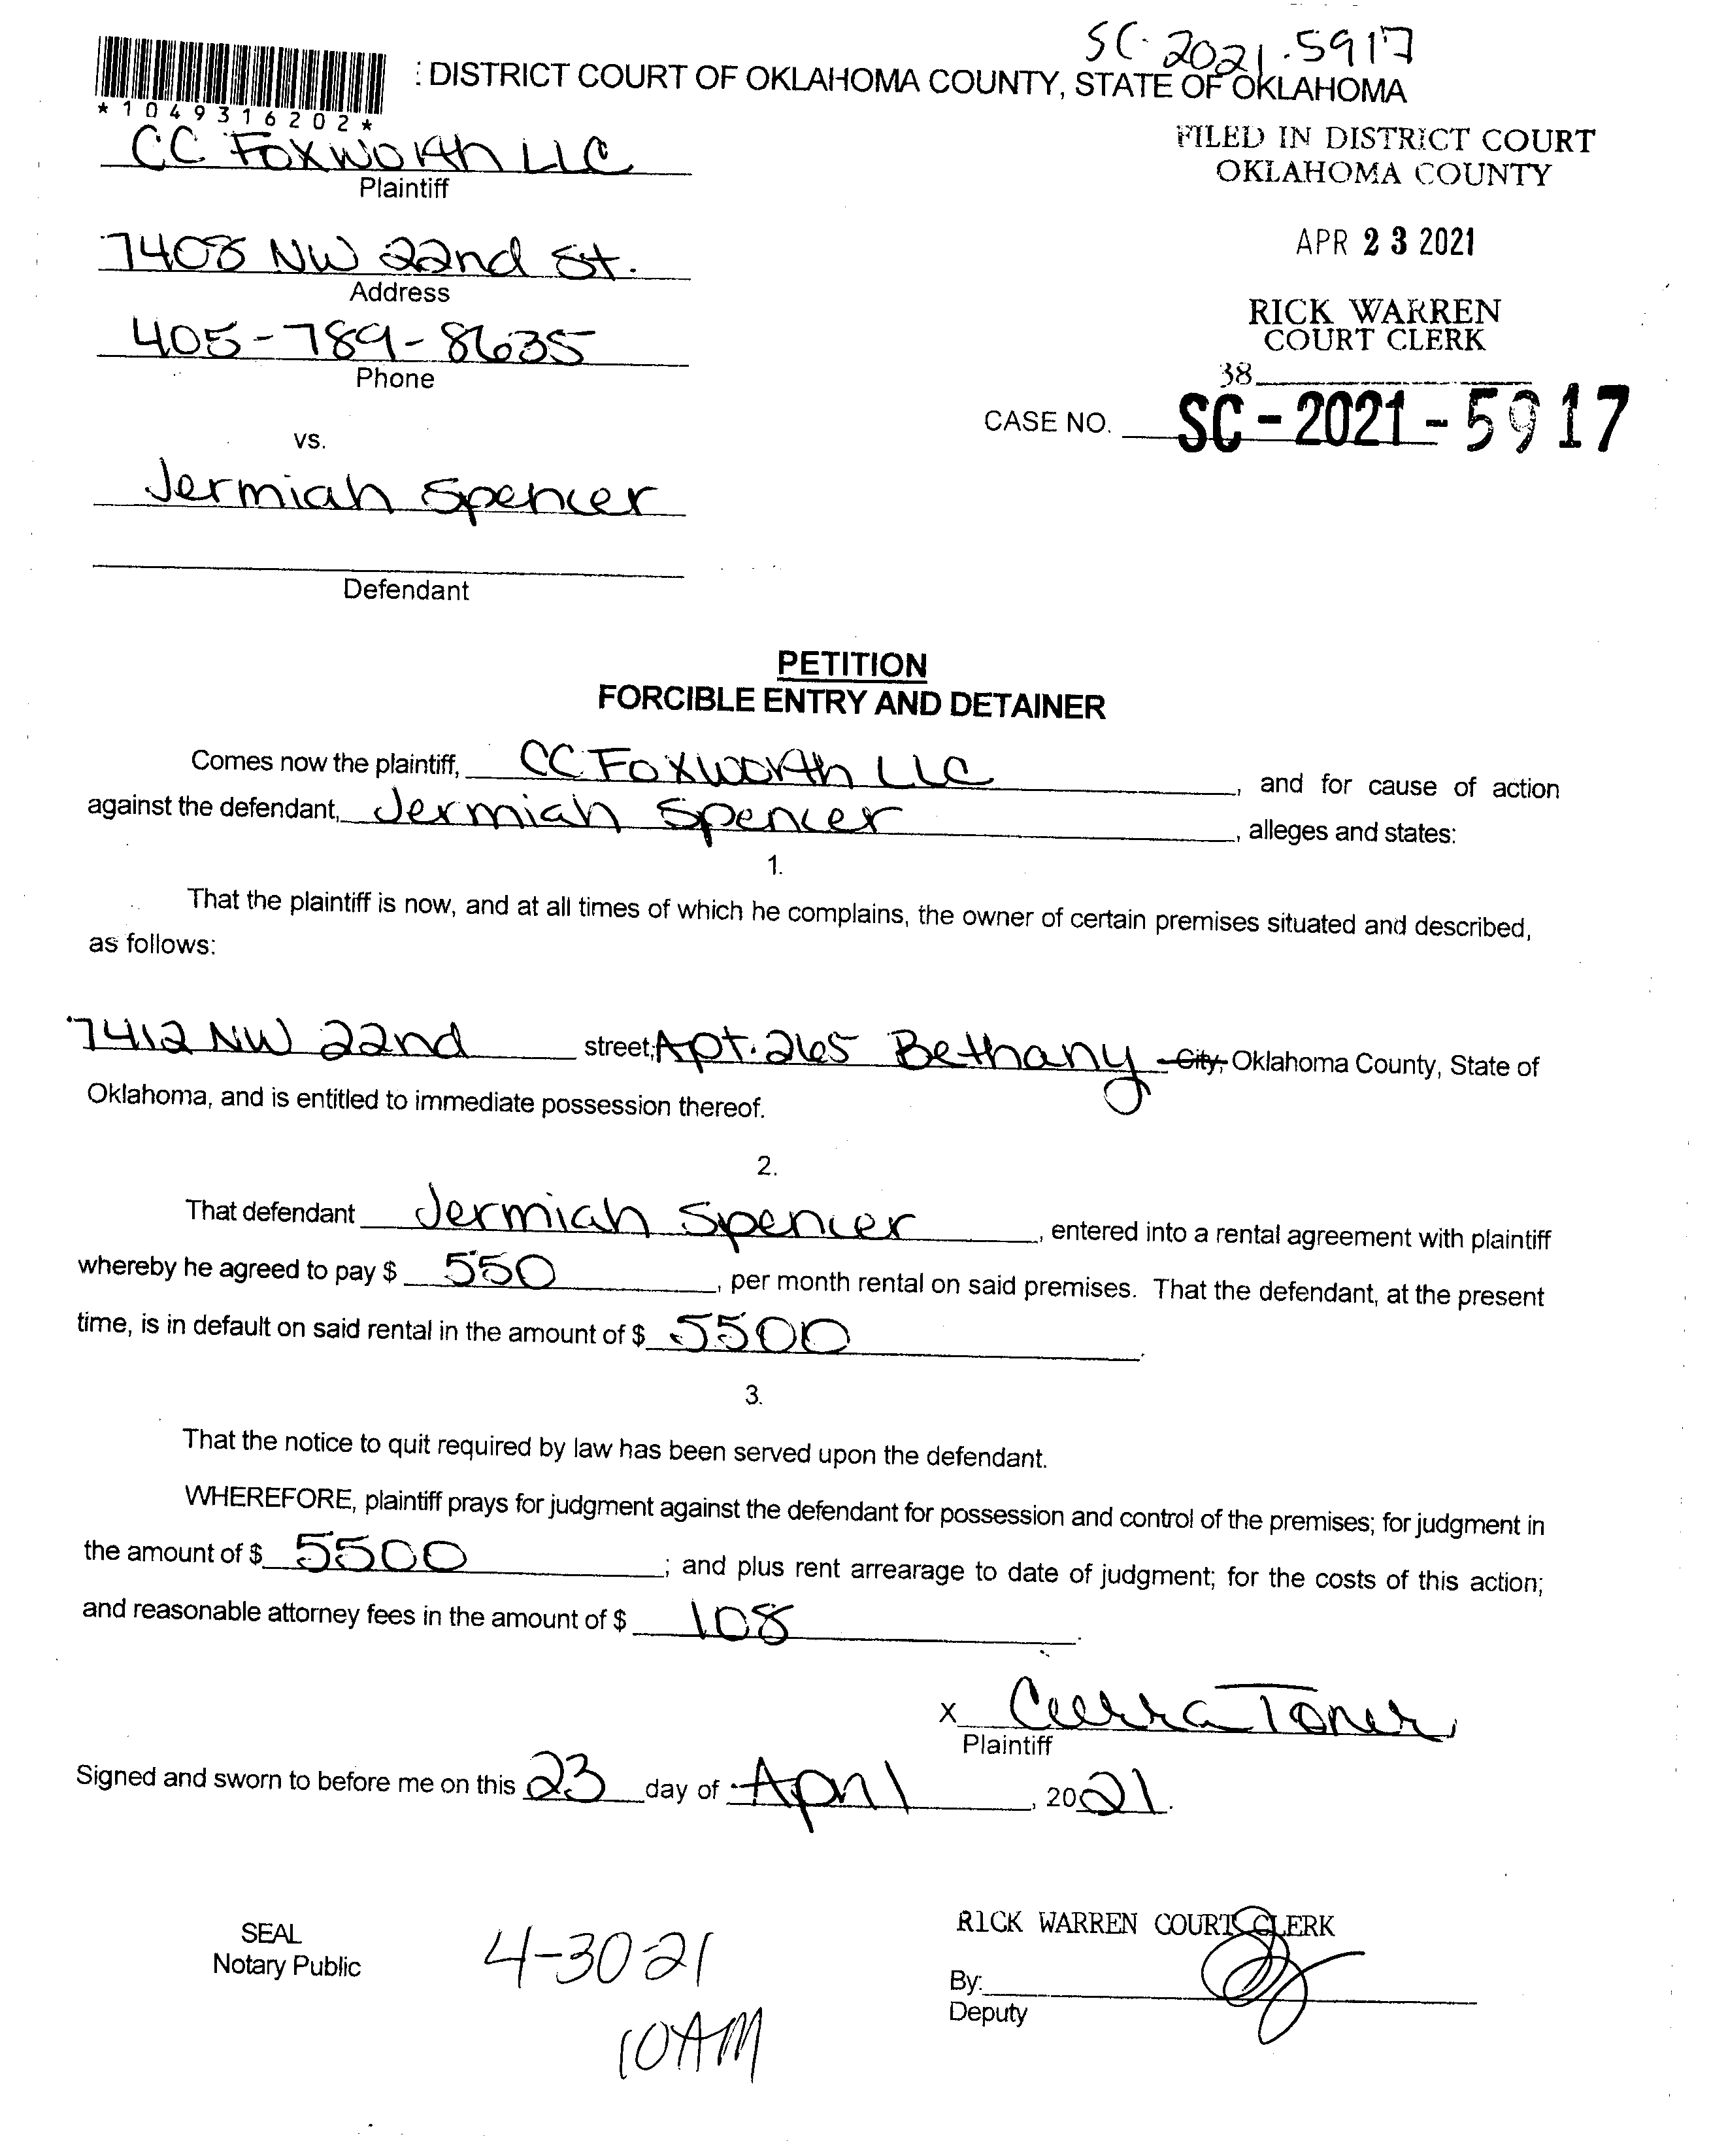 SC-2021-5917
: DISTRICT COURT OF OKLAHOMA COUNTY, STATE OF OKLAHOMA
*1049316202*
CC Foxworth LLC
Plaintiff
FILED IN DISTRICT COURT
OKLAHOMA COUNTY
7408 NW 22nd St.
Address
APR 23 2021
405-789-8635
Phone
RICK WARREN
COURT CLERK
38
CASE NO. SC-2021-5917
vs.
Jermiah Spencer
Defendant
PETITION
FORCIBLE ENTRY AND DETAINER
Comes now the plaintiff, CC Foxworth LLC, and for cause of action
against the defendant, Jermiah Spencer, alleges and states:
1.
That the plaintiff is now, and at all times of which he complains, the owner of certain premises situated and described,
as follows:
7412 NW 22nd street, Apt. 265 Bethany City, Oklahoma County, State of
Oklahoma, and is entitled to immediate possession thereof.
2.
That defendant Jermiah Spencer, entered into a rental agreement with plaintiff
whereby he agreed to pay $ 550, per month rental on said premises. That the defendant, at the present
time, is in default on said rental in the amount of $ 5500.
3.
That the notice to quit required by law has been served upon the defendant.
WHEREFORE, plaintiff prays for judgment against the defendant for possession and control of the premises; for judgment in
the amount of $ 5500; and plus rent arrearage to date of judgment; for the costs of this action;
and reasonable attorney fees in the amount of $ 108.
X Cierra Toner
Plaintiff
Signed and sworn to before me on this 23 day of April, 2021.
SEAL
Notary Public
4-30-21
10AM
RICK WARREN COURT CLERK
By:
Deputy